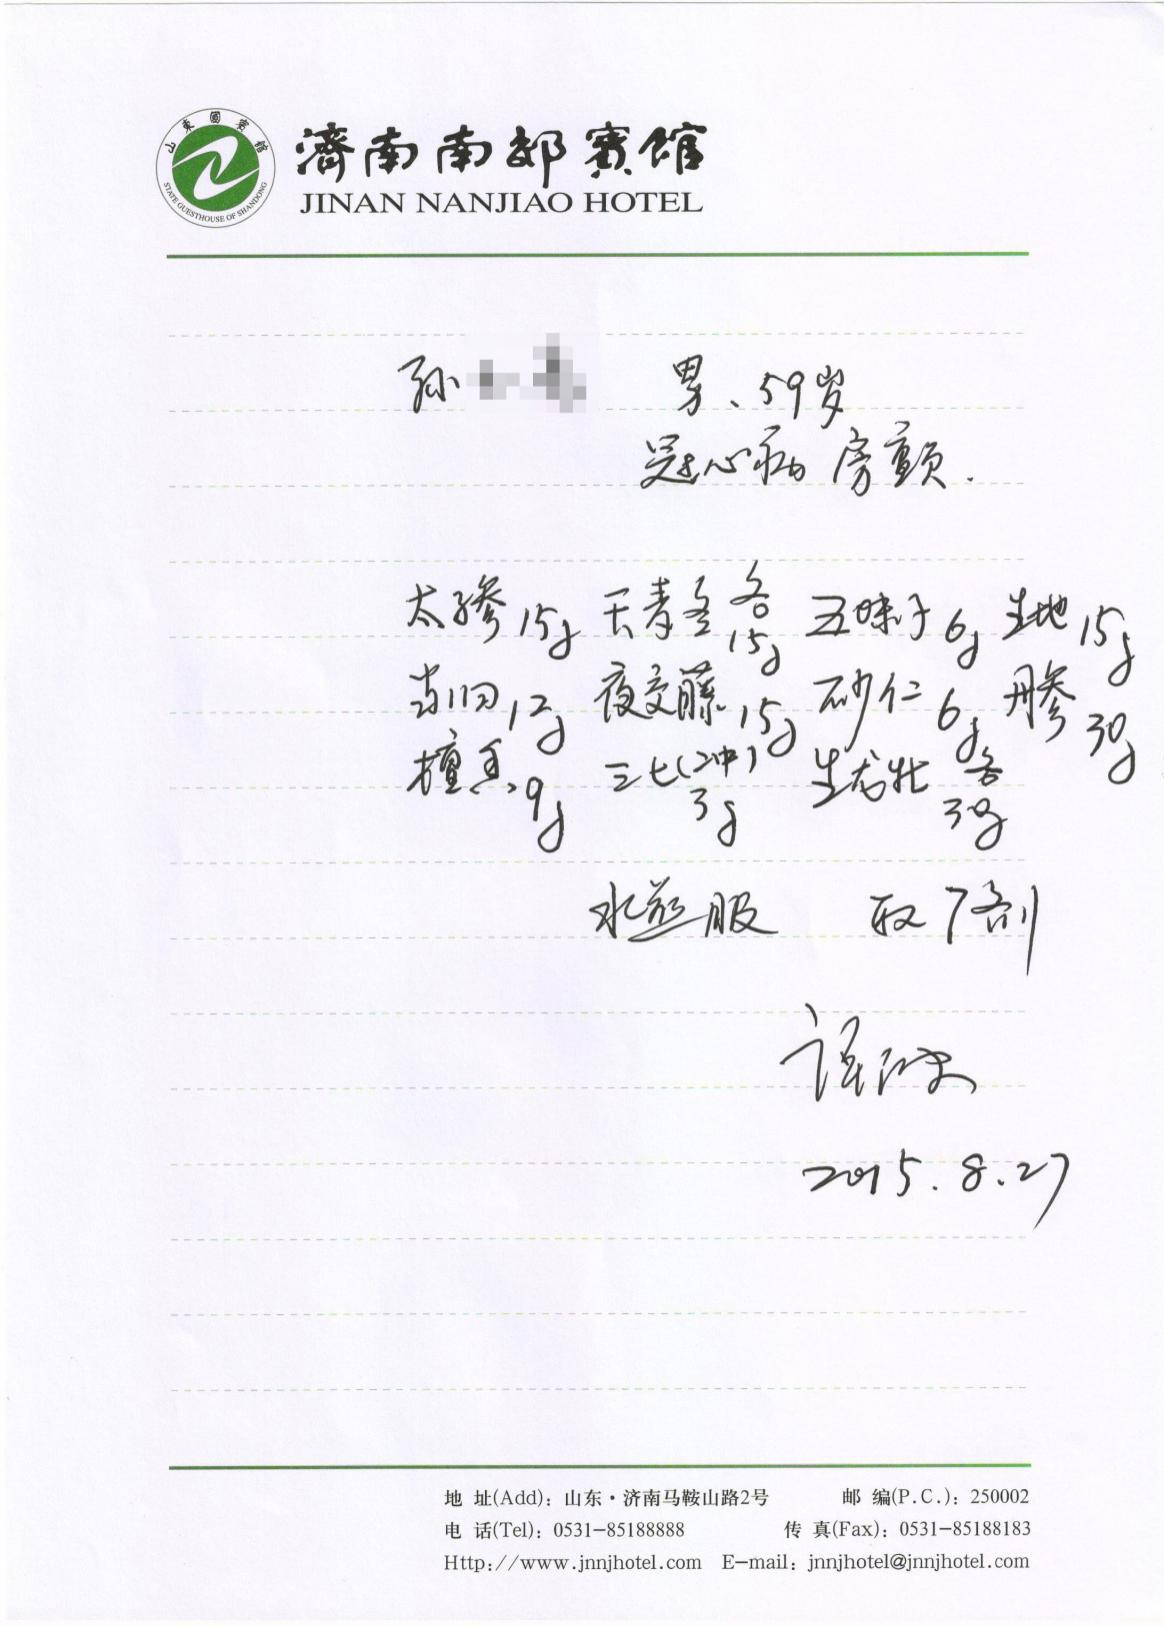 山東國賓館
STATE GUESTHOUSE OF SHANDONG
濟南南郊賓館
JINAN NANJIAO HOTEL
孙 男、59岁
冠心病 房重颤.
太子参15g 天麦冬各15g 五味子6g 生地15g
当归12g 夜交藤15g 砂仁6g 丹参30g
檀香9g 三七(冲)3g 生龙牡各30g
水煎服 取7剂
2015.8.27
地 址(Add): 山东·济南马鞍山路2号 邮 编(P.C.): 250002
电 话(Tel): 0531-85188888 传 真(Fax): 0531-85188183
Http://www.jnnjhotel.com E-mail: jnnjhotel@jnnjhotel.com